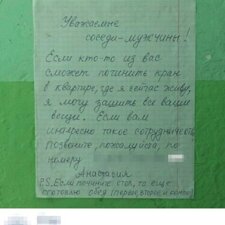 Уважаемые
соседи-мужчины!
Если кто-то из вас
сможет починить кран
в квартире, где я сейчас живу,
я могу зашить все ваши
вещи. Если вам
интересно такое сотрудничество
позвоните, пожалуйста, по
номеру
Анастасия
P.S. Если почините стол, то еще
приготовлю обед (первое, второе и компот)